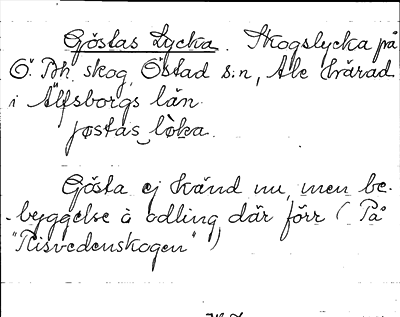 Göstas Lycka. Skogslycka på
Ö. Bh. skog, Östad s:n, Ale härad
i Älfsborgs län.
jøstas_lòka.
Gösta ej känd nu, men be-
byggelse å odling där förr (På
"Risvedenskogen")